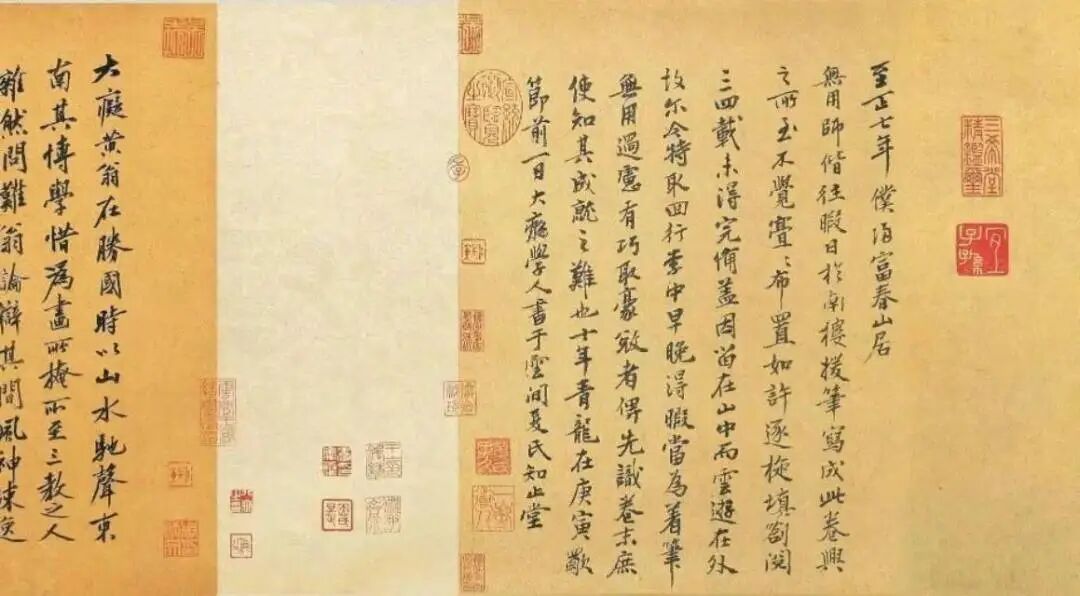 三希堂精鑑璽
宜子孫
至正七年僕歸富春山居
無用師偕往暇日於南樓援筆寫成此卷興
之所至不覺亹〻布置如許逐旋填劄閱
三四載未得完備蓋因留在山中而雲遊在外
故尔今特取回行李中早晚得暇當為着筆
無用過慮有巧取豪敚者俾先識卷末庶
使知其成就之難也十年青龍在庚寅歜
節前一日大癡學人書于雲間夏氏知止堂
大癡黃翁在勝國時以山水馳聲東
南其博學惜為畫所掩所至三教之人
雜然問難翁論辯其間風神竦逸